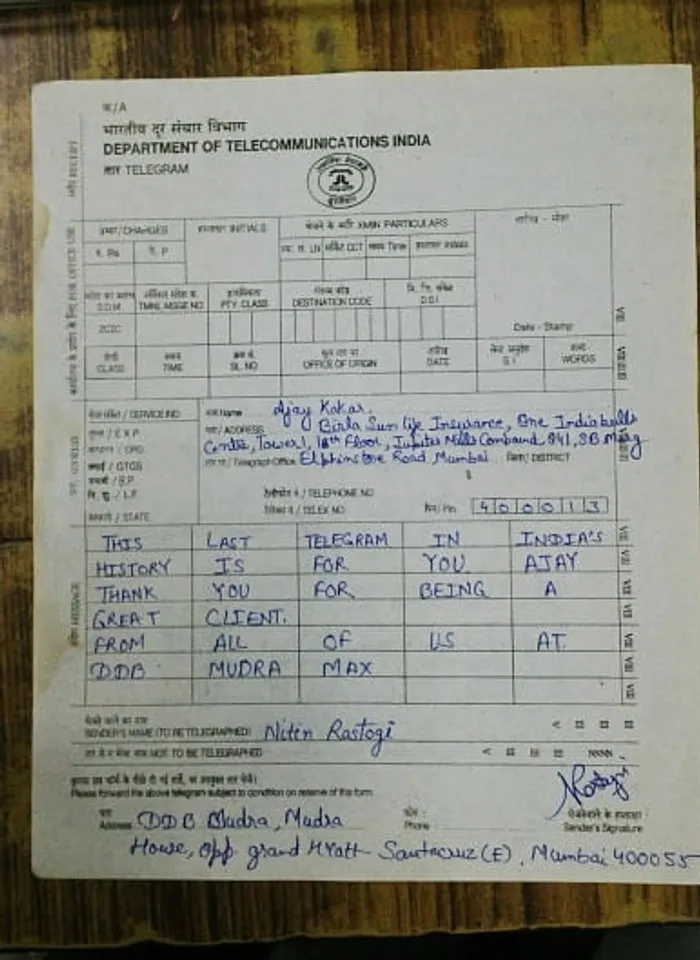 क/A
भारतीय दूर संचार विभाग
DEPARTMENT OF TELECOMMUNICATIONS INDIA
तार TELEGRAM
प्रभार/CHARGES INITIALS XMIN PARTICULARS
रु. Rs पै. P LN CCT समय Time
S.D.M. TMNL MSGE NO PTY. CLASS DESTINATION CODE D.S.I
ZCZC Date - Stamp
श्रेणी समय क्रम सं. मूल तार घर तारीख शब्द
CLASS TIME SL. NO OFFICE OF ORIGIN DATE S.I WORDS
SERVICE IND नाम Name Ajay Kakar.
/ E X P पता/ ADDRESS Birla Sun life Insurance, One Indiabulls
Centre, Tower 1, 18th Floor, Jupiter Mills Compound 841, SB Marg
/ GTGS तार घर/ Telegraph Office Elphinstone Road Mumbai जिला/ DISTRICT
/ B.P
/ L.F. टेलीफोन नं / TELEPHONE NO
राज्य / STATE टेलेक्स नं / TELEX NO पिन/ Pin. 400013
THIS LAST TELEGRAM IN INDIA'S
HISTORY IS FOR YOU AJAY
THANK YOU FOR BEING A
GREAT CLIENT.
FROM ALL OF US AT
DDB MUDRA MAX
भेजने वाले का नाम
SENDER'S NAME (TO BE TELEGRAPHED) Nitin Rastogi
NOT TO BE TELEGRAPHED NNNN
Please forward the above telegram subject to condition on reserve of the form
पता फोन :
Address DDB Mudra, Mudra Phone भेजनेवाले के हस्ताक्षर
Sender's Signature
House, Opp. grand HYatt Santacruz (E), Mumbai 400055